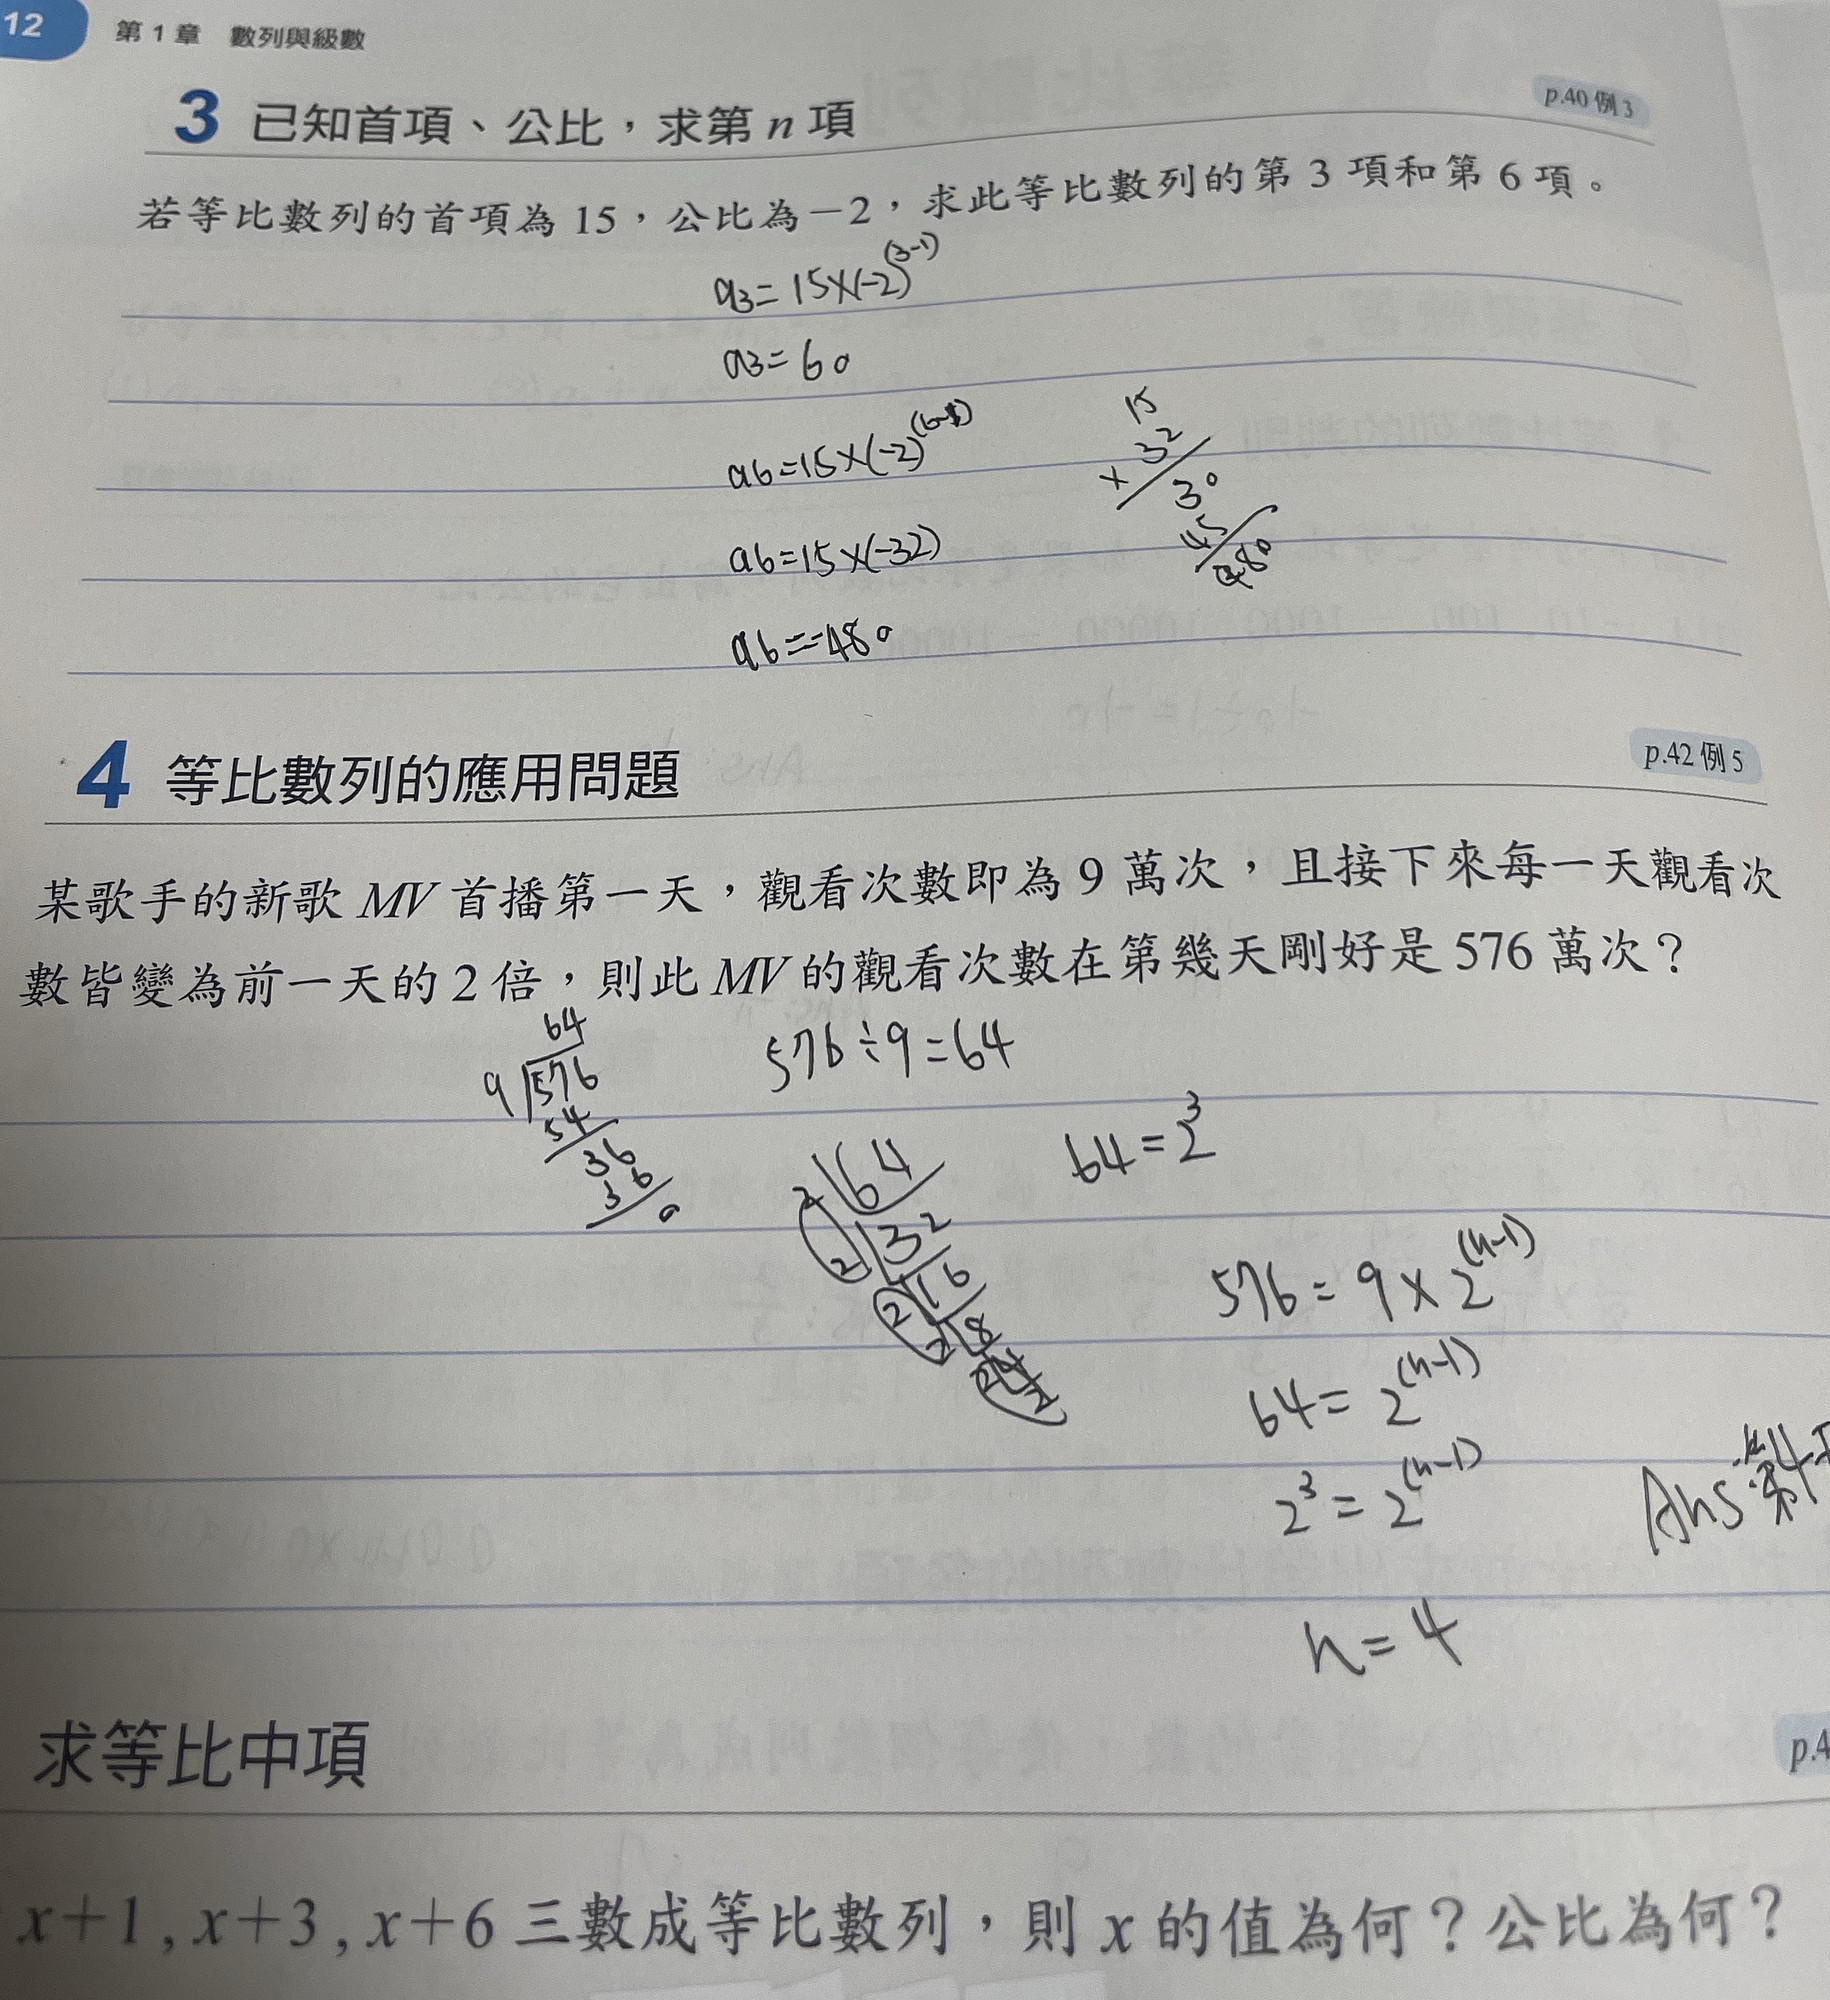 12 第1章 數列與級數
3 已知首項、公比,求第 n 項 p.40 例3
若等比數列的首項為 15,公比為-2,求此等比數列的第 3 項和第 6 項。
a3=15×(-2)^(3-1)
a3=60
a6=15×(-2)^(6-1)
15
×32
30
45
480
a6=15×(-32)
a6=-480
4 等比數列的應用問題 p.42 例5
某歌手的新歌 MV 首播第一天,觀看次數即為 9 萬次,且接下來每一天觀看次
數皆變為前一天的 2 倍,則此 MV 的觀看次數在第幾天剛好是 576 萬次?
64
9 576
54
36
36
0
576÷9=64
2 64
2 32
2 16
2 8
2 4
2
64=2^3
576=9×2^(n-1)
64=2^(n-1)
2^3=2^(n-1)
Ans:第4
n=4
求等比中項 p.4
x+1,x+3,x+6 三數成等比數列,則 x 的值為何?公比為何?